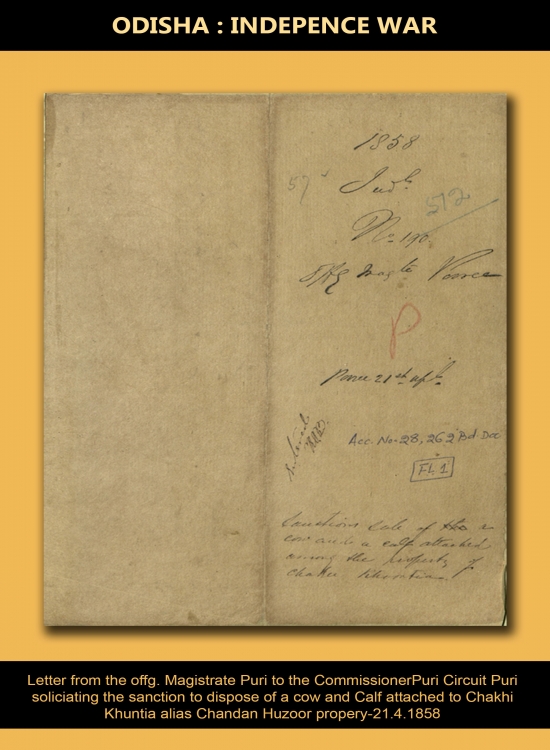 ODISHA : INDEPENCE WAR
1858
57
Judl.
512
No. 190
Offg Magte Pooree
P
Pooree 21st Apl.
Acc. No-28, 262 Bd. Doc
FL 1
Sanctions sale of a
cow and a calf attached
among the property of
Letter from the offg. Magistrate Puri to the CommissionerPuri Circuit Puri
soliciating the sanction to dispose of a cow and Calf attached to Chakhi
Khuntia alias Chandan Huzoor propery-21.4.1858